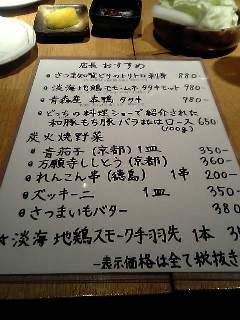 店長 おすすめ
さつま知覧どりのトリトロ刺身 880-
淡海地鶏モモ・ムネ タタキセット 980-
青森産 本鴨 タタキ 980-
どっちの料理ショーで紹介された
和豚もち豚 バラまたはロース 650
(100g)
炭火焼野菜
青茄子(京都) 1皿 350-
万願寺ししとう(京都) 360-
れんこん串(徳島) 1串 200-
ズッキーニ 1皿 350-
さつまいもバター 380
淡海 地鶏スモーク手羽先 1本
―表示価格は全て税抜き